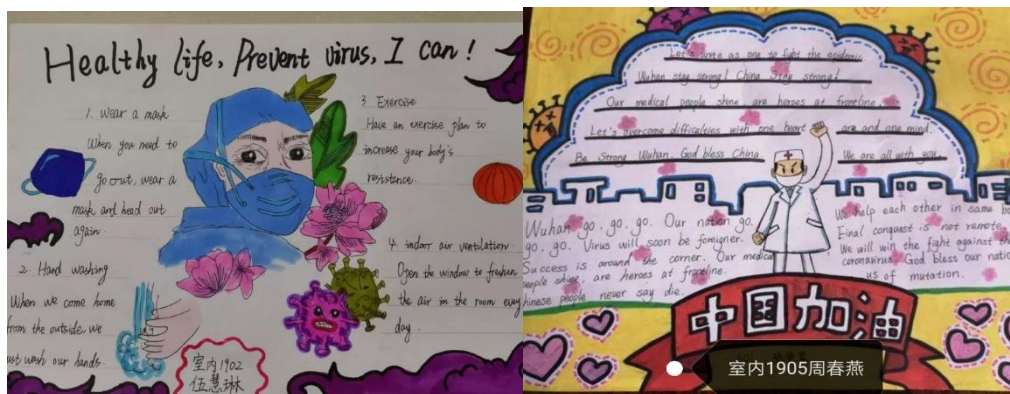 Healthy life, Prevent virus, I can!
1. Wear a mask
When you need to
go out, wear a
mask and head out
again.
2. Hand washing
When we come home
from the outside, we
ust wash our hands.
3 Exercise
Have an exercise plan to
increase your body's
resistance.
4. indoor air ventilation.
Open the window to freshen
the air in the room every
day.
室内1902
伍慧琳
Let's unite as one to fight the epidemic
Wuhan stay strong! China stay strong!
Our medical people shine, are heroes at frontline.
Let's overcome difficulties with one heart are and one mind.
Be Strong Wuhan. God bless China. We are all with you.
Wuhan go. go. go. Our nation go.
go. go. Virus will soon be foreigner.
Success is around the corner. Our medical
people shine, are heroes at frontline.
hinese people never say die.
We help each other in same bo
Final conquest is not remote.
We will win the fight against the
coronavirus. God bless our natio
us of mutation.
中国加油
室内1905周春燕